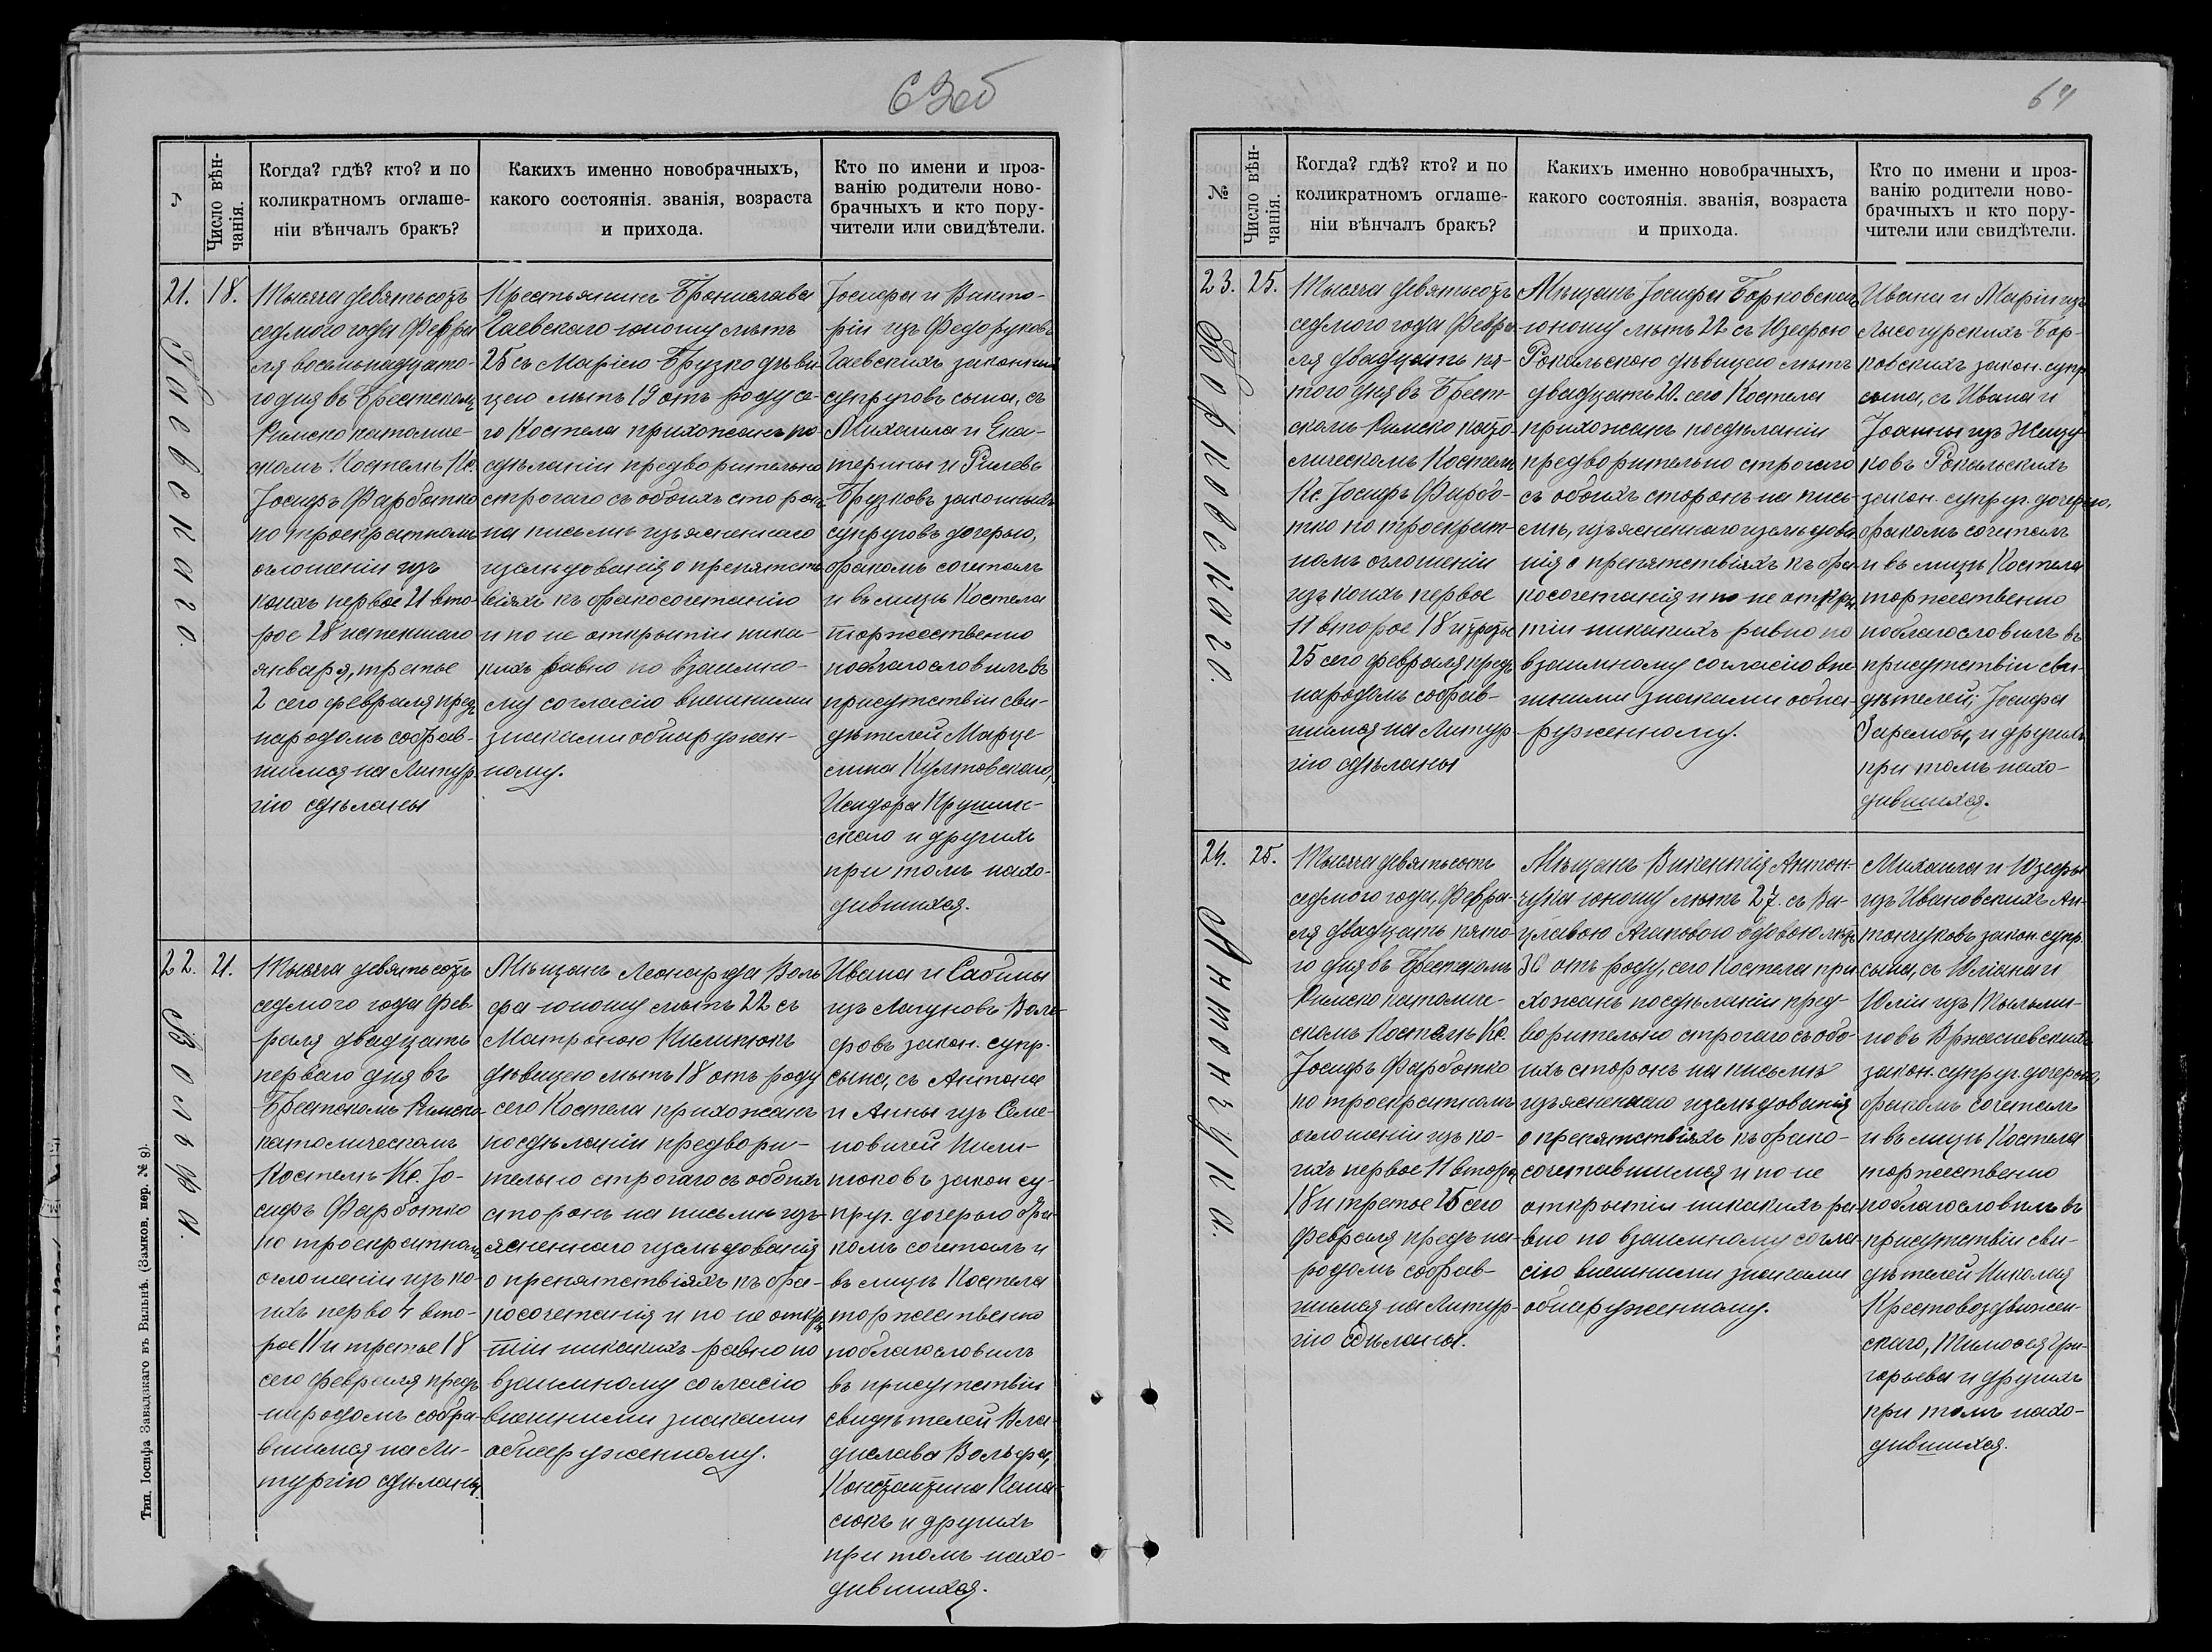 63об
№
Число вѣн-
чанія.
Когда? гдѣ? кто? и по
коликратномъ оглаше-
ніи вѣнчалъ бракъ?
Какихъ именно новобрачныхъ,
какого состоянія. званія, возраста
и прихода.
Кто по имени и проз-
ванію родители ново-
брачныхъ и кто пору-
чители или свидѣтели.
21.
18.
Гаевскаго.
Тысяча девятьсотъ
седмого года Февра
ля восемьнадцато-
го дня въ Брестскомъ
Римско католиче-
скомъ Костелѣ Кс.
Іосифъ Фарботко
по троекратномъ
оглошеніи изъ
коихъ первое 21 вто-
рое 28 истекшаго
января, третье
2 сего февраля предъ
народомъ собрав-
шимся на Литур
гію сдѣланы
Крестьянина Бронислава
Гаевскаго юношу лѣтъ
25 съ Маріею Брузко дѣви-
цею лѣтъ 19 отъ роду се-
го Костела прихожанъ по
сдѣланіи предворительно
строгаго съ обоихъ сторонъ
на письмѣ изъясненнаго
изслѣдованія о препятст-
віяхъ къ бракосочетанію
и по не открытіи ника-
кихъ равно по взаимно-
му согласію внешними
знаками обнаружен-
ному.
Іосифа и Викто-
ріи изъ Федоруковъ
Гаевскихъ законныхъ
супруговъ сына, съ
Михаила и Ека-
терины и Рилевъ
Брузковъ законныхъ
супруговъ дочерью,
бракомъ сочеталъ
и въ лицѣ Костела
торжественно
поблагословилъ въ
присутствіи сви-
дѣтелей Марце-
лина Култовскаго,
Исидора Крушин-
скаго и другихъ
при томъ нахо-
дившихся.
22.
21.
Вольфа.
Тысяча девятьсотъ
седмого года Фев
раля двадцать
перваго дня въ
Брестскомъ Римско
католическомъ
Костелѣ Кс. Іо-
сифъ Фарботко
по троекратномъ
оглошеніи изъ ко-
ихъ перво 4 вто-
рое 11 и третье 18
сего февраля предъ
народомъ собра-
вшимся на Ли-
тургію сдѣланы.
Мѣщанъ Леонарда Воль
фа юношу лѣтъ 22 съ
Матроною Пилипюкъ
дѣвицею лѣтъ 18 отъ роду
сего Костела прихожанъ
по сдѣланіи предвори-
тельно строгаго съ обоихъ
сторонъ на письмѣ изъ-
ясненнаго изслѣдованія
о препятствіяхъ къ бра-
косочетанія и по не откры
тіи никакихъ равно по
взаимному согласію
внешними знаками
обнаруженному.
Ивана и Сабины
изъ Лагуновъ Воль-
фовъ закон. супр.
сына, съ Антона
и Анны изъ Семе-
новичей Пили-
пюковъ закон су-
пруг. дочерью бра-
комъ сочеталъ и
въ лицѣ Костела
торжественно
поблагословилъ
въ присутствіи
свидѣтелей Вла-
дислава Вольфа,
Константина Кана-
сюкъ и другихъ
при томъ нахо-
дившихся.
Тип. Іосифа Завадзкаго въ Вильнѣ. (Замков. пер. № 9).
64
№
Число вѣн-
чанія.
Когда? гдѣ? кто? и по
коликратномъ оглаше-
ніи вѣнчалъ бракъ?
Какихъ именно новобрачныхъ,
какого состоянія. званія, возраста
и прихода.
Кто по имени и проз-
ванію родители ново-
брачныхъ и кто пору-
чители или свидѣтели.
23.
25.
Борковскаго.
Тысяча девятьсотъ
седмого года Февра-
ля двадцать пя-
того дня въ Брест-
скомъ Римско като-
лическомъ Костелѣ
Кс. Іосифъ Фарбо-
тко по троекрат-
номъ оглошеніи
изъ коихъ первое
11 второе 18 и третье
25 сего февраля предъ
народомъ собрав-
шимся на Литур
гію сдѣланы
Мѣщанъ Іосифа Борковскаго
юношу лѣтъ 22 съ Юзефою
Рокальскою дѣвицею лѣтъ
двадцать 20. сего Костела
прихожанъ по сдѣланіи
предворительно строгаго
съ обоихъ сторонъ на пись-
мѣ, изъясненнаго изслѣдова-
нія о препятствіяхъ къ бра-
косочетанія и по не откры-
тіи никакихъ равно по
взаимному согласію вне-
шними знаками обна-
руженному.
Ивана и Маріи изъ
Лысогурскихъ Бор-
ковскихъ закон. супр
сына, съ Ивана и
Іоанны изъ
ковъ Рокальскихъ
закон. супруг. дочерью,
бракомъ сочеталъ
и въ лицѣ Костела
торжественно
поблагословилъ въ
присутствіи сви-
дѣтелей; Іосифа
Зарембы, и другихъ
при томъ нахо-
дившихся.
24.
25.
Антончука.
Тысяча девятьсотъ
седмого года, Февра-
ля двадцать пято-
го дня въ Брестскомъ
Римско католиче-
скомъ Костелѣ Кс.
Іосифъ Фарботко
по троекратномъ
оглошеніи изъ ко-
ихъ первое 11 второе
18 и третье 25 сего
Февраля предъ на-
родомъ собрав-
шимся на Литур-
гію сдѣланы.
Мѣщанъ Викентія Антон-
чука юношу лѣтъ 27. съ Ва-
цлавою Агаповою вдовою лѣтъ
30 отъ роду, сего Костела при
хожанъ по сдѣланіи пред-
ворительно строгаго съ обо-
ихъ сторонъ на письмѣ
изъясненнаго изслѣдованія
о препятствіяхъ къ брако-
сочетавшимся и по не
открытіи никакихъ ра-
вно по взаимному согла-
сію внешними знаками
обнаруженному.
Михаила и Юзефы
изъ Ивановскихъ Ан-
тончуковъ закон. супр.
сына, съ Юліана и
Юліи изъ
новъ Вржесневскихъ
закон. супруг. дочерью,
бракомъ сочеталъ
и въ лицѣ Костела
торжественно
поблагословилъ въ
присутствіи сви-
дѣтелей Николая
Крестовоздвижен-
скаго, Тимофея Гри-
горьева и другихъ
при томъ нахо-
дившихся.